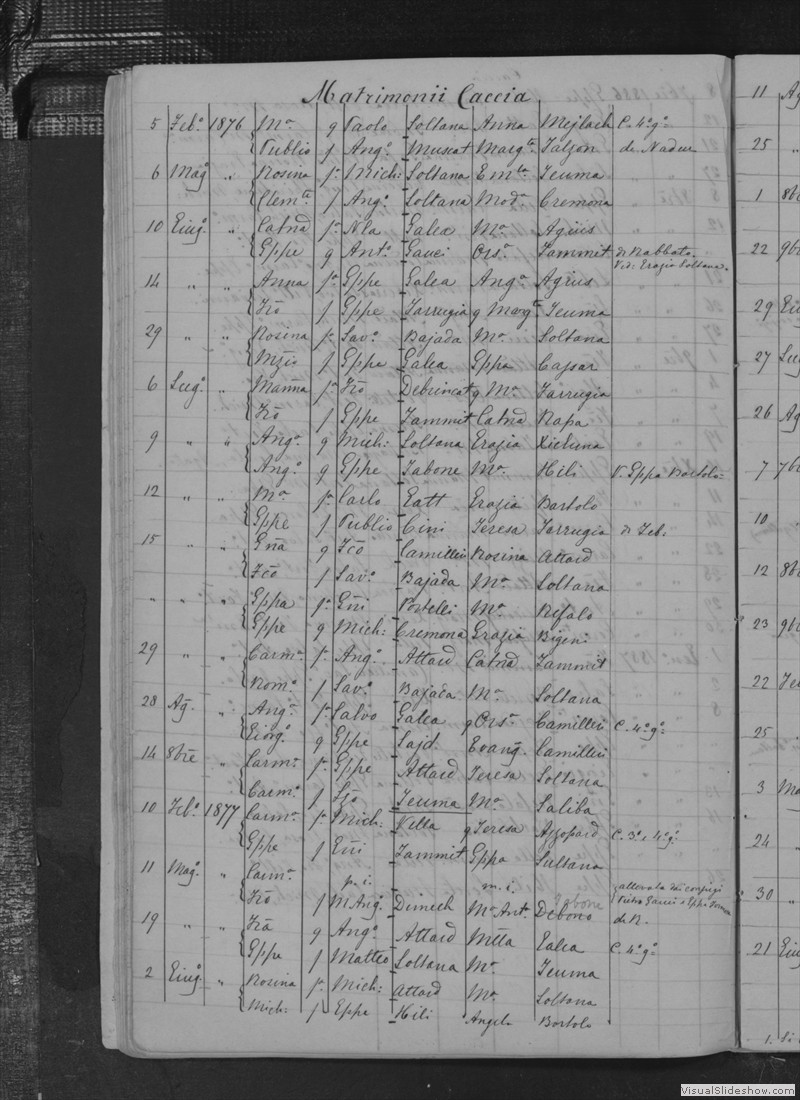 Matrimonii Caccia
5 Feb.º 1876 Mª q Paolo Soltana Anna Mejlach C. 4º gº
Publio f Angº Muscat Margta de Nadur
6 Magº " Rosina fª Mich: Soltana Emta Teuma
Clemte f Angº Soltana Modª Cremona
10 Giugº " Catnā fª Nla Galea Mª Agius
Gppe q Antº Gauci Orsª Tammit di Rabbato
Vedi Grazia Soltana
14 " " Anna fª Gppe Galea Angª Agius
Frō f Gppe Farrugia q Margta Teuma
29 " " Rosina fª Savº Bajada Mª Soltana
f Gppe Galea Gppa Cassar
6 Lugº " fª Frō Debrincat q Mª Farrugia
Frō f Gppe Tammit Catnā Rapa
9 " " Angª q Mich: Soltana Grazia Xicluna
Angº q Gppe Tabone Mª Hili V. Gppa Bartolo
12 " " Mª fª Carlo Grazia Bartolo
Gppe f Publio Cini Teresa Farrugia di Zeb:
15 " " q Frō Camilleri Rosina Attard
Frō f Savº Bajada Mª Soltana
" " " Gppa fª Portelli Mª Refalo
Gppe q Mich: Cremona Grazia Bigeni
29 " " Carmª fª Angº Attard Catnā Tammit
Romº f Savº Bajada Mª Soltana
28 Ag. " Angª fª Salvo Galea q Orsª Camilleri C. 4º gº
Giorgº q Gppe Sajd Evang. Camilleri
14 8bre " Carmª fª Gppe Attard Teresa Soltana
Carmº f Frō Teuma Mª Saliba
10 Febº 1877 Carmª fª Mich: Vella q Teresa Azzopard C. 3º e 4º gº
Gppe f Tammit Gppa Sultana
11 Magº " Carmª p. i. m. i. allevata dai conjugi
Frō f M.Angº Dimech Mª Ant. Debono de R.
19 " " Frā q Angº Attard Galea C. 4º gº
Gppe f Matteo Soltana Mª Teuma
2 Giugº " Rosina fª Mich: Attard Mª Soltana
Mich: f Gppe Hili Angela Bartolo
11 Ag
25 "
1 8b
22 9b
29 Giu
27 Lug
26 Ag
7 7b
10
12 8b
23 9b
22 Fe
25
3 Ma
24 "
30 "
21 Giu
VisualSlideshow.com